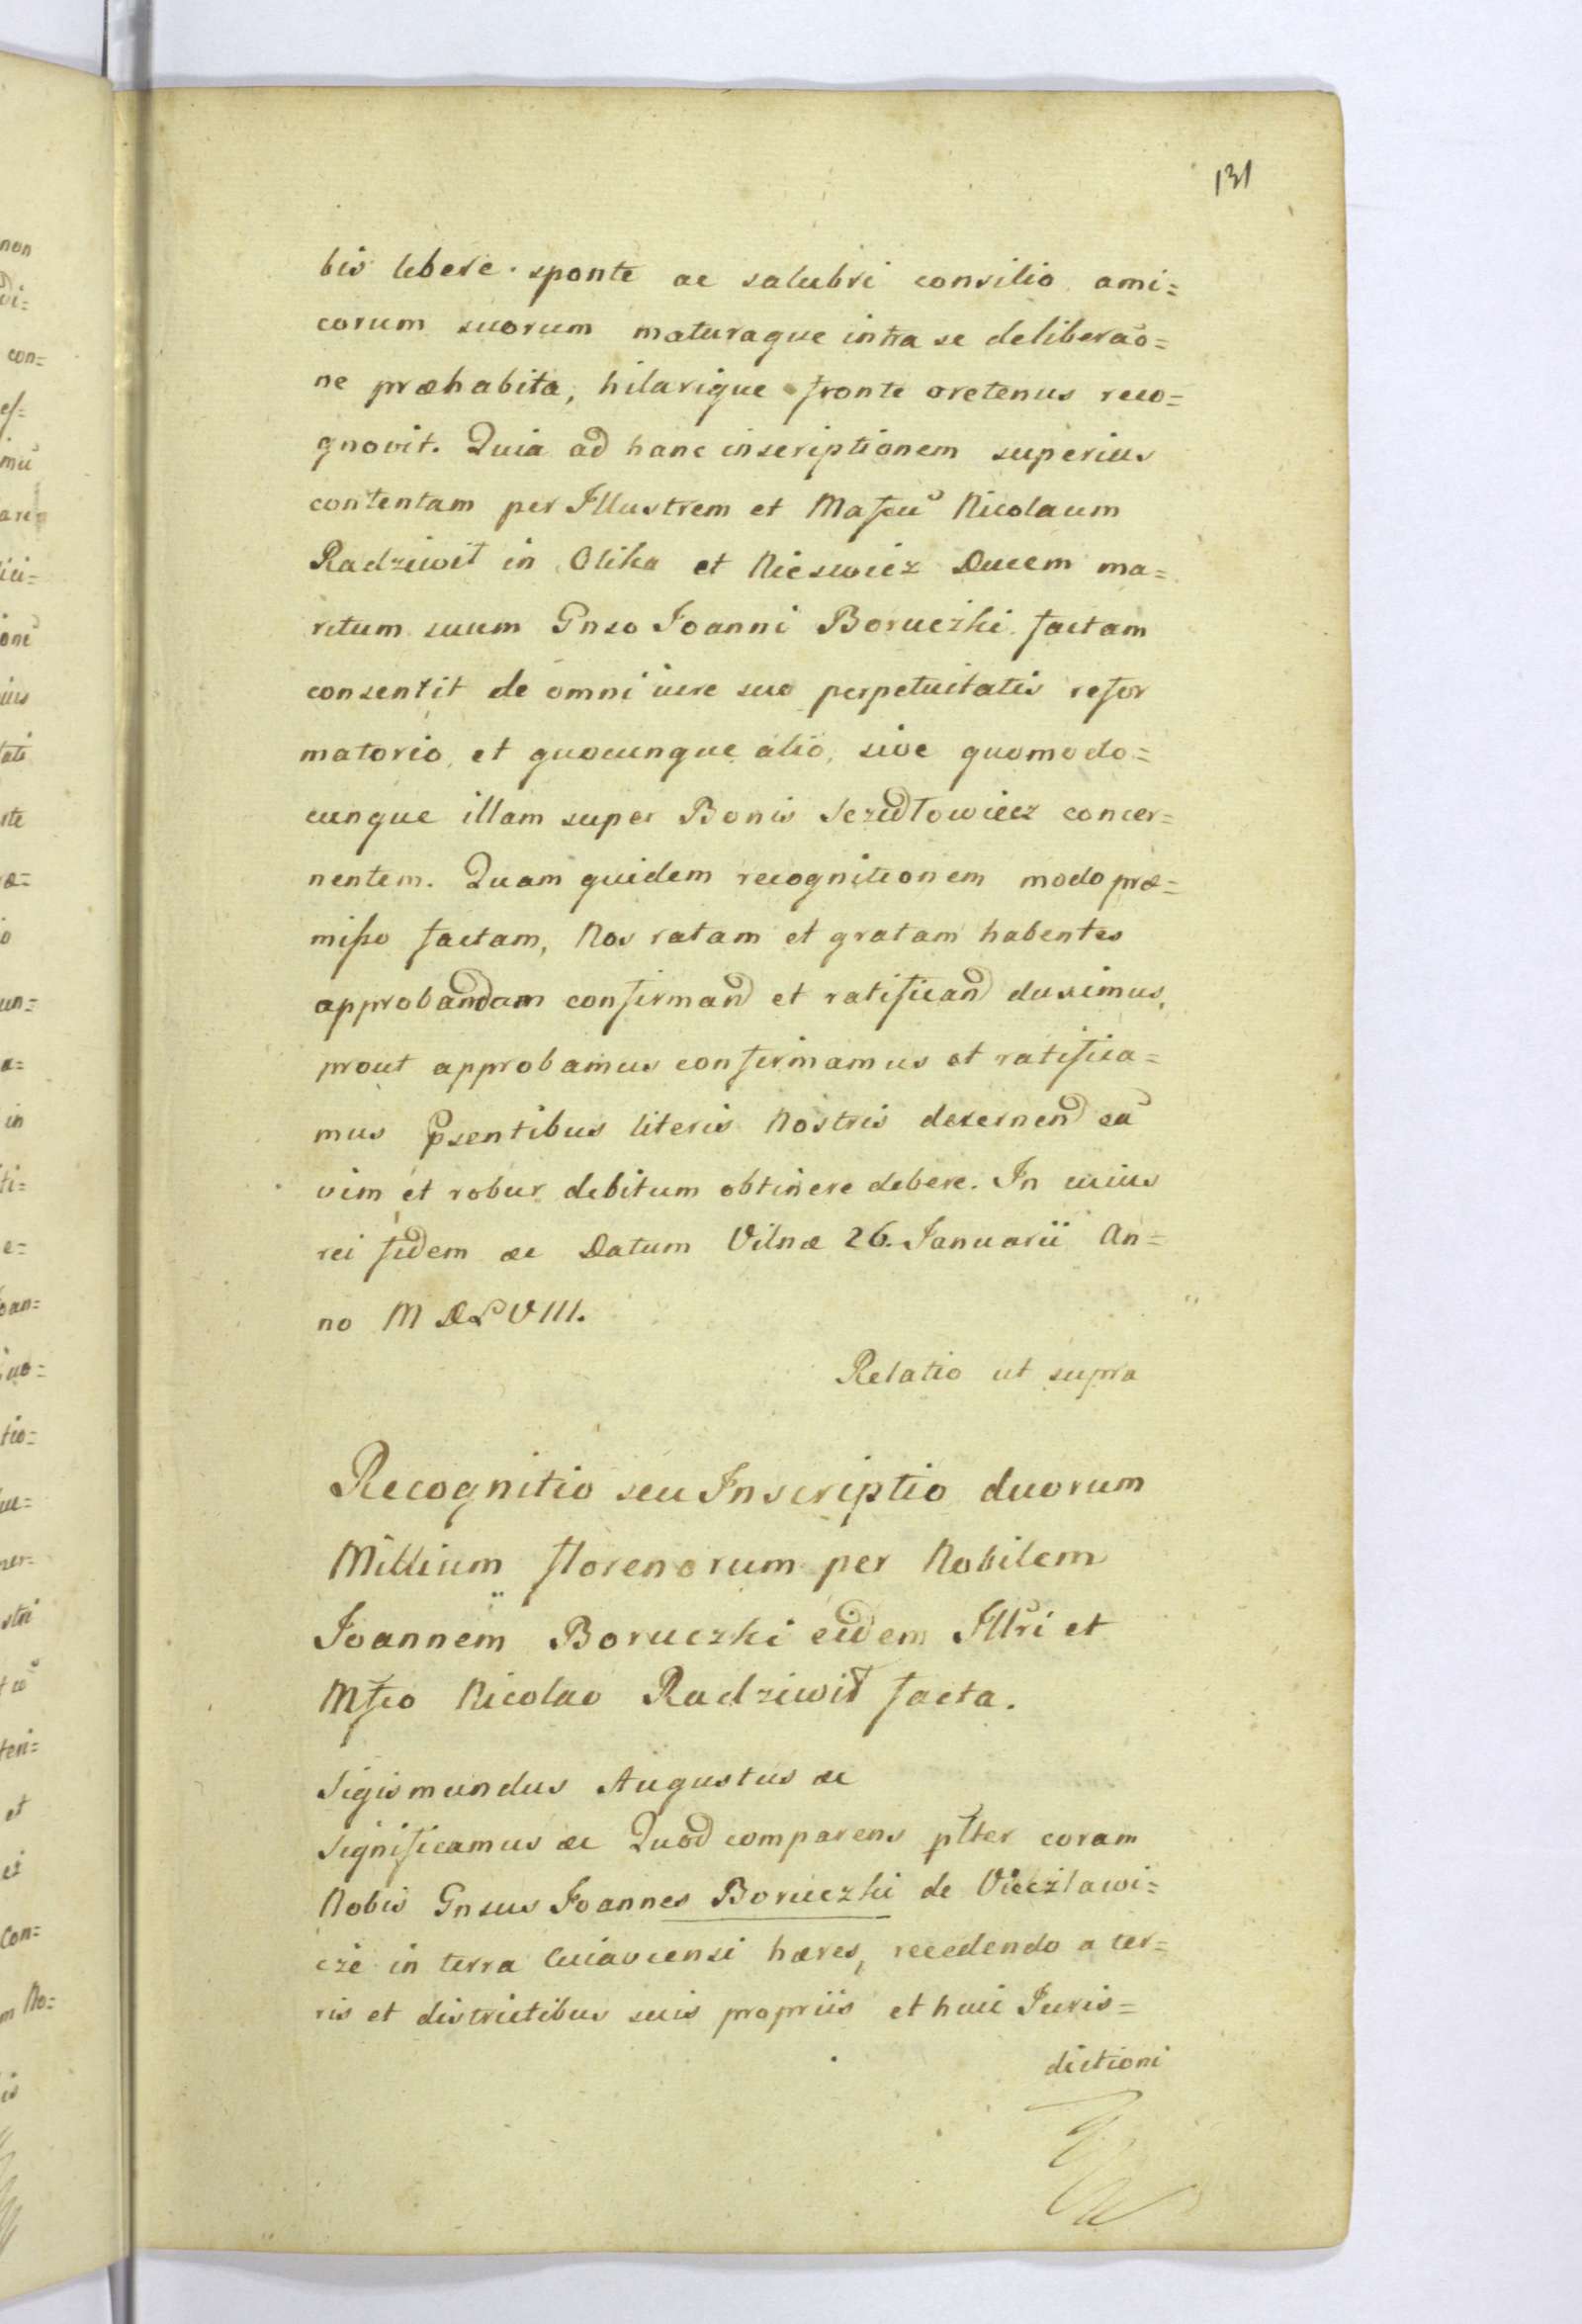 131
bis libere sponte ac salubri consilio ami=
corum suorum maturaque intra se deliberão=
ne præhabita, hilarique fronte oretenus reco=
gnovit. Quia ad hanc inscriptionem superius
contentam per Illustrem et Mafcũ Nicolaum
Radziwił in Olika et Nieswiez Ducem ma=
ritum suum Gnso Joanni Boruczki factam
consentit de omni iure suo perpetuitatis refor
matorio, et quocunque alio, sive quomodo=
cunque illam super Bonis Sczidłowiecz concer=
nentem. Quam quidem recognitionem modo præ=
misso factam, Nos ratam et gratam habentes
approbandam confirmand et ratificand duximus,
prout approbamus confirmamus et ratifica=
mus psentibus literis Nostris decernend eã
vim et robur debitum obtinere debere. In cuius
rei fidem &c Datum Vilnæ 26. Januarii An=
no MDLVIII.
Relatio ut supra
Recognitio seu Inscriptio duorum
Millium florenorum per Nobilem
Joannem Boruczki eidem Illri et
Mfco Nicolao Radziwił facta.
Sigismundus Augustus &c
Significamus &c Quod comparens plter coram
Nobis Gnsus Joannes Boruczki de Vieczlawi=
cze in terra Cuiaviensi hæres, recedendo a ter=
ris et districtibus suis propriis et huic Juris=
dictioni
non
con=
mũ
ici=
ius
un=
in
ti=
e=
oan=
tio=
stri
ten=
et
Con=
m No=
is